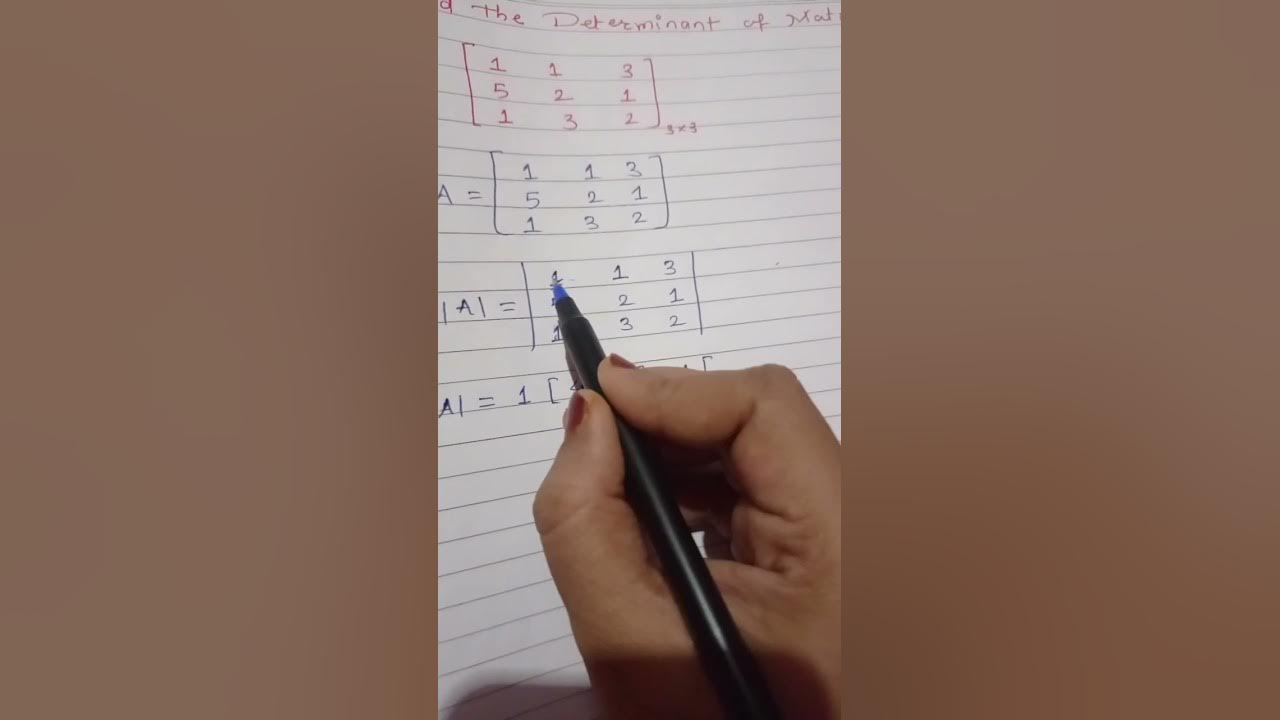 the Determinant of
1 1 3
5 2 1
1 3 2
3×3
A = 1 1 3
5 2 1
1 3 2
|A| = 1 1 3
2 1
1 3 2
A| = 1 [